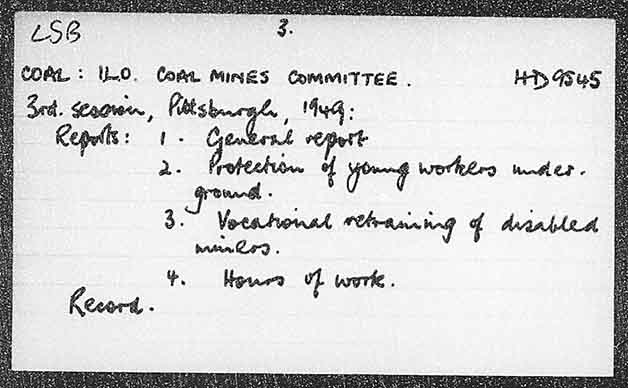 LSB 3.
COAL : ILO. COAL MINES COMMITTEE. HD9545
3rd. session, Pittsburgh, 1949:
Reports: 1. General report
2. Protection of young workers under-
ground.
3. Vocational retraining of disabled
miners.
4. Hours of work.
Record.